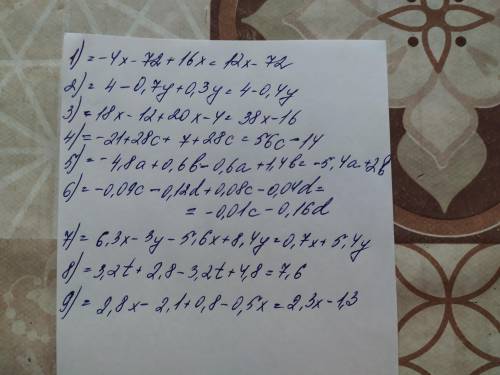 1) = -4x - 72 + 16x = 12x - 72
2) = 4 - 0,7y + 0,3y = 4 - 0,4y
3) = 18x - 12 + 20x - 4 = 38x - 16
4) = -21 + 28c + 7 + 28c = 56c - 14
5) = -4,8a + 0,6b - 0,6a + 1,4b = -5,4a + 2b
6) = -0,09c - 0,12d + 0,08c - 0,04d =
= -0,01c - 0,16d
7) = 6,3x - 3y - 5,6x + 8,4y = 0,7x + 5,4y
8) = 3,2t + 2,8 - 3,2t + 4,8 = 7,6
9) = 2,8x - 2,1 + 0,8 - 0,5x = 2,3x - 1,3